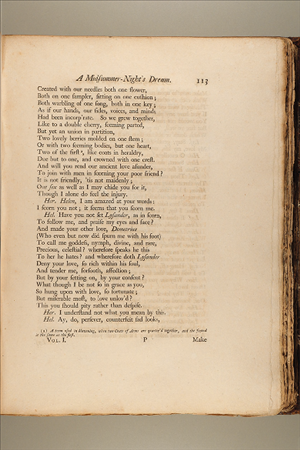 A Midsummer-Night's Dream. 113
Created with our needles both one flower,
Both on one sampler, sitting on one cushion;
Both warbling of one song, both in one key;
As if our hands, our sides, voices, and minds
Had been incorp'rate. So we grew together,
Like to a double cherry, seeming parted,
But yet an union in partition,
Two lovely berries molded on one stem;
Or with two seeming bodies, but one heart,
Two of the first, like coats in heraldry,
Due but to one, and crowned with one crest.
And will you rend our ancient love asunder,
To join with men in scorning your poor friend?
It is not friendly, 'tis not maidenly;
Our sex as well as I may chide you for it,
Though I alone do feel the injury.
Her. Helen, I am amazed at your words:
I scorn you not; it seems that you scorn me.
Hel. Have you not set Lysander, as in scorn,
To follow me, and praise my eyes and face?
And made your other love, Demetrius
(Who even but now did spurn me with his foot)
To call me goddess, nymph, divine, and rare,
Precious, celestial? wherefore speaks he this
To her he hates? and wherefore doth Lysander
Deny your love, so rich within his soul,
And tender me, forsooth, affection;
But by your setting on, by your consent?
What though I be not so in grace as you,
So hung upon with love, so fortunate;
But miserable most, to love unlov'd?
This you should pity rather than despise.
Her. I understand not what you mean by this.
Hel. Ay, do, persever, counterfeit sad looks,
(a) A term used in Heraldry, when two Coats of Arms are quarter'd together, and the second
is the same as the first.
VOL. I. P Make